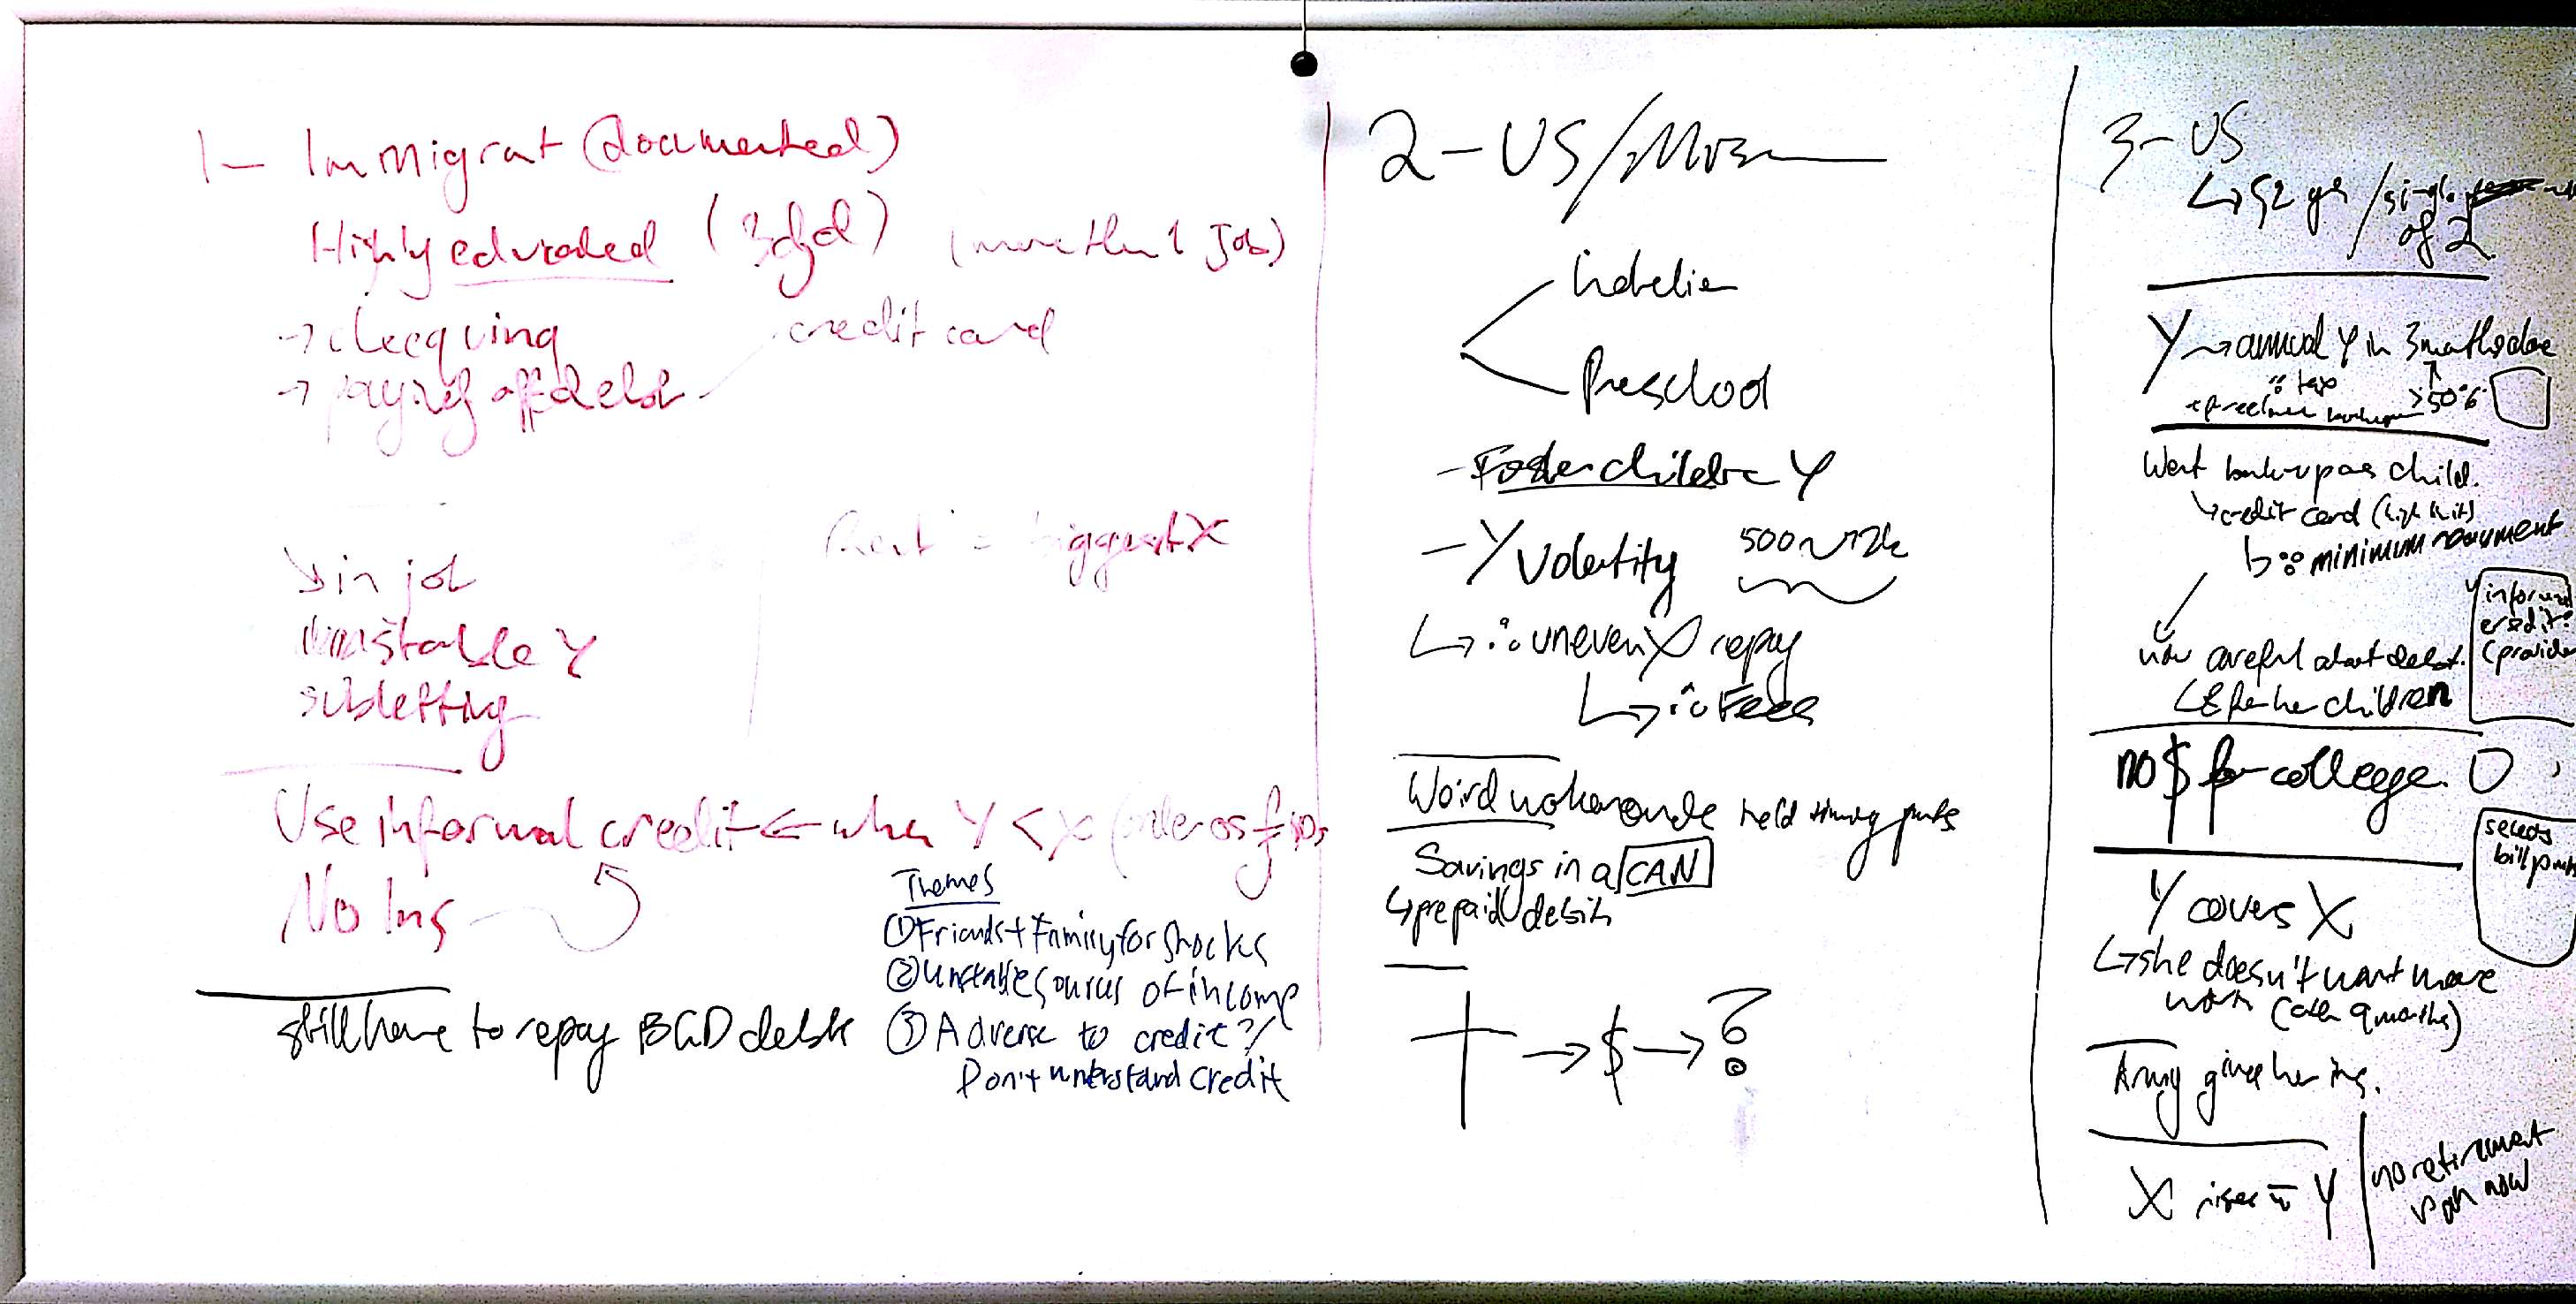 1- Immigrat (documented)
Highly educated (more than 1 Job)
→ checquing
→ paying off debt
credit card
Rent = biggest X
↘ in job
unstable Y
subletting
Use informal credit ← when Y < X
No Ins
still have to repay debt
Themes
① Friends + Family for Shocks
② Unstable sources of income
③ Adverse to credit?/
Don't understand credit
2-US/
Preschool
- Foster childre Y
- Y Volatity 500
↳ ∴ uneven X repay
↳ ∴ Fees
Savings in a CAN
↳ prepaid debit
→ $ → ?
3-US
↳ 52 yrs / single
of 2
Y → annual Y in 3 months
∵ tax
>50%
Went as child.
↳ credit card (high limit)
↳ ∵ minimum
now careful about debt.
↳ & for her children
informal
credit:
no $ for college.
Y covers X
↳ she doesn't want more
work (other 9 months)
Army gives her ins.
X rises w Y
no retirement
now